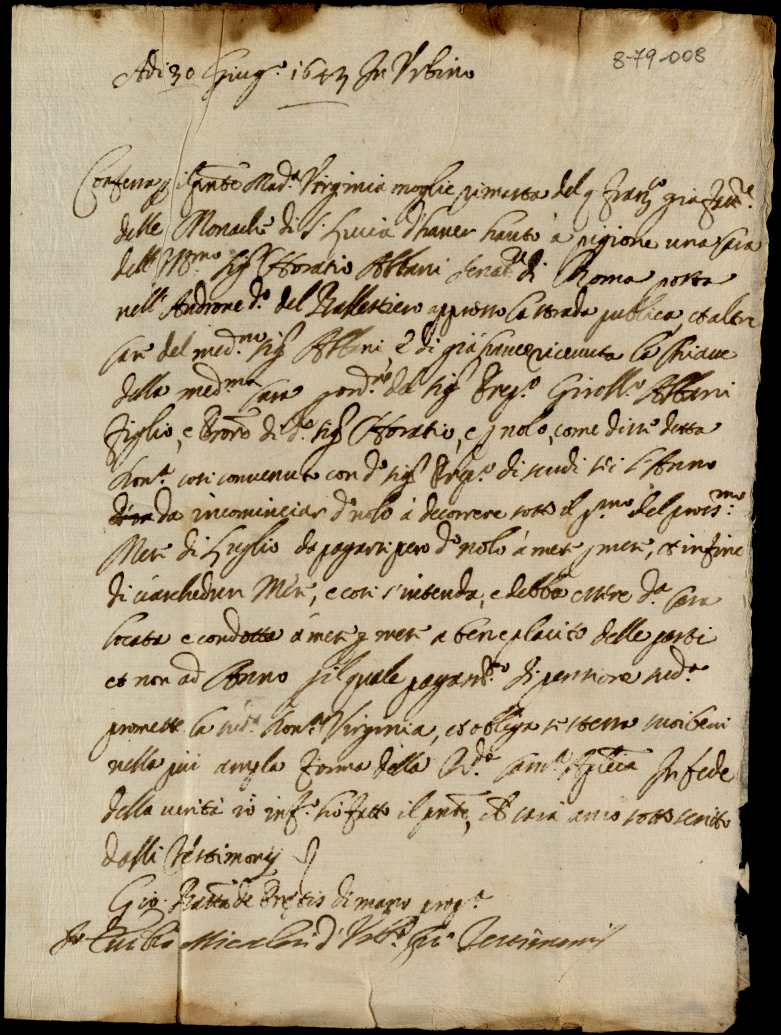 8-79-008
Adi 30 Giug.o 1643 In Urbino
Confessa p il pnte Mad.a Virginia moglie rimasta del q Fran.co già fatt.e
delle Monache di S Lucia d'haver hauto à pigione una Casa
dell Ill.mo Sig.r Horatio Albani Senat.re di Roma posta
nell Androne d.o del Ballestiero appresso la strada publica, et altre
case del med.mo Sig.r Albani, e di già havere ricevuta la Chiave
della med.ma Casa p ord.e del Sig.r Girol.o Albani
figlio, e di d.o Sig.r Horatio, e p nolo, come disse detta
Hon.a cosi convenuto con d.o Sig.r di scudi sei l'Anno
da incominciar d.o nolo à decorrere sotto il p.mo del pross.mo
Mese di Luglio da pagarsi pero d.o nolo à mese p mese, et in fine
di ciaschedun Mese, e cosi s'intenda, e debba essere d.a Casa
locata e condotta à mese p mese a beneplacito delle parti
et non ad Anno p il quale pagam.to di pensione sud.a
promette la sud.a Hon.a Virginia, et obliga se stessa suoi beni
nella più ampla forma della R.da Cam.a Aplica In fede
della verità io inf.o hò fatto il pnte, che sarà anco sottoscritto
dalli Testimonij
Gio. Batta de di mano prop.a
Io d'Urb.o fui Testimonio